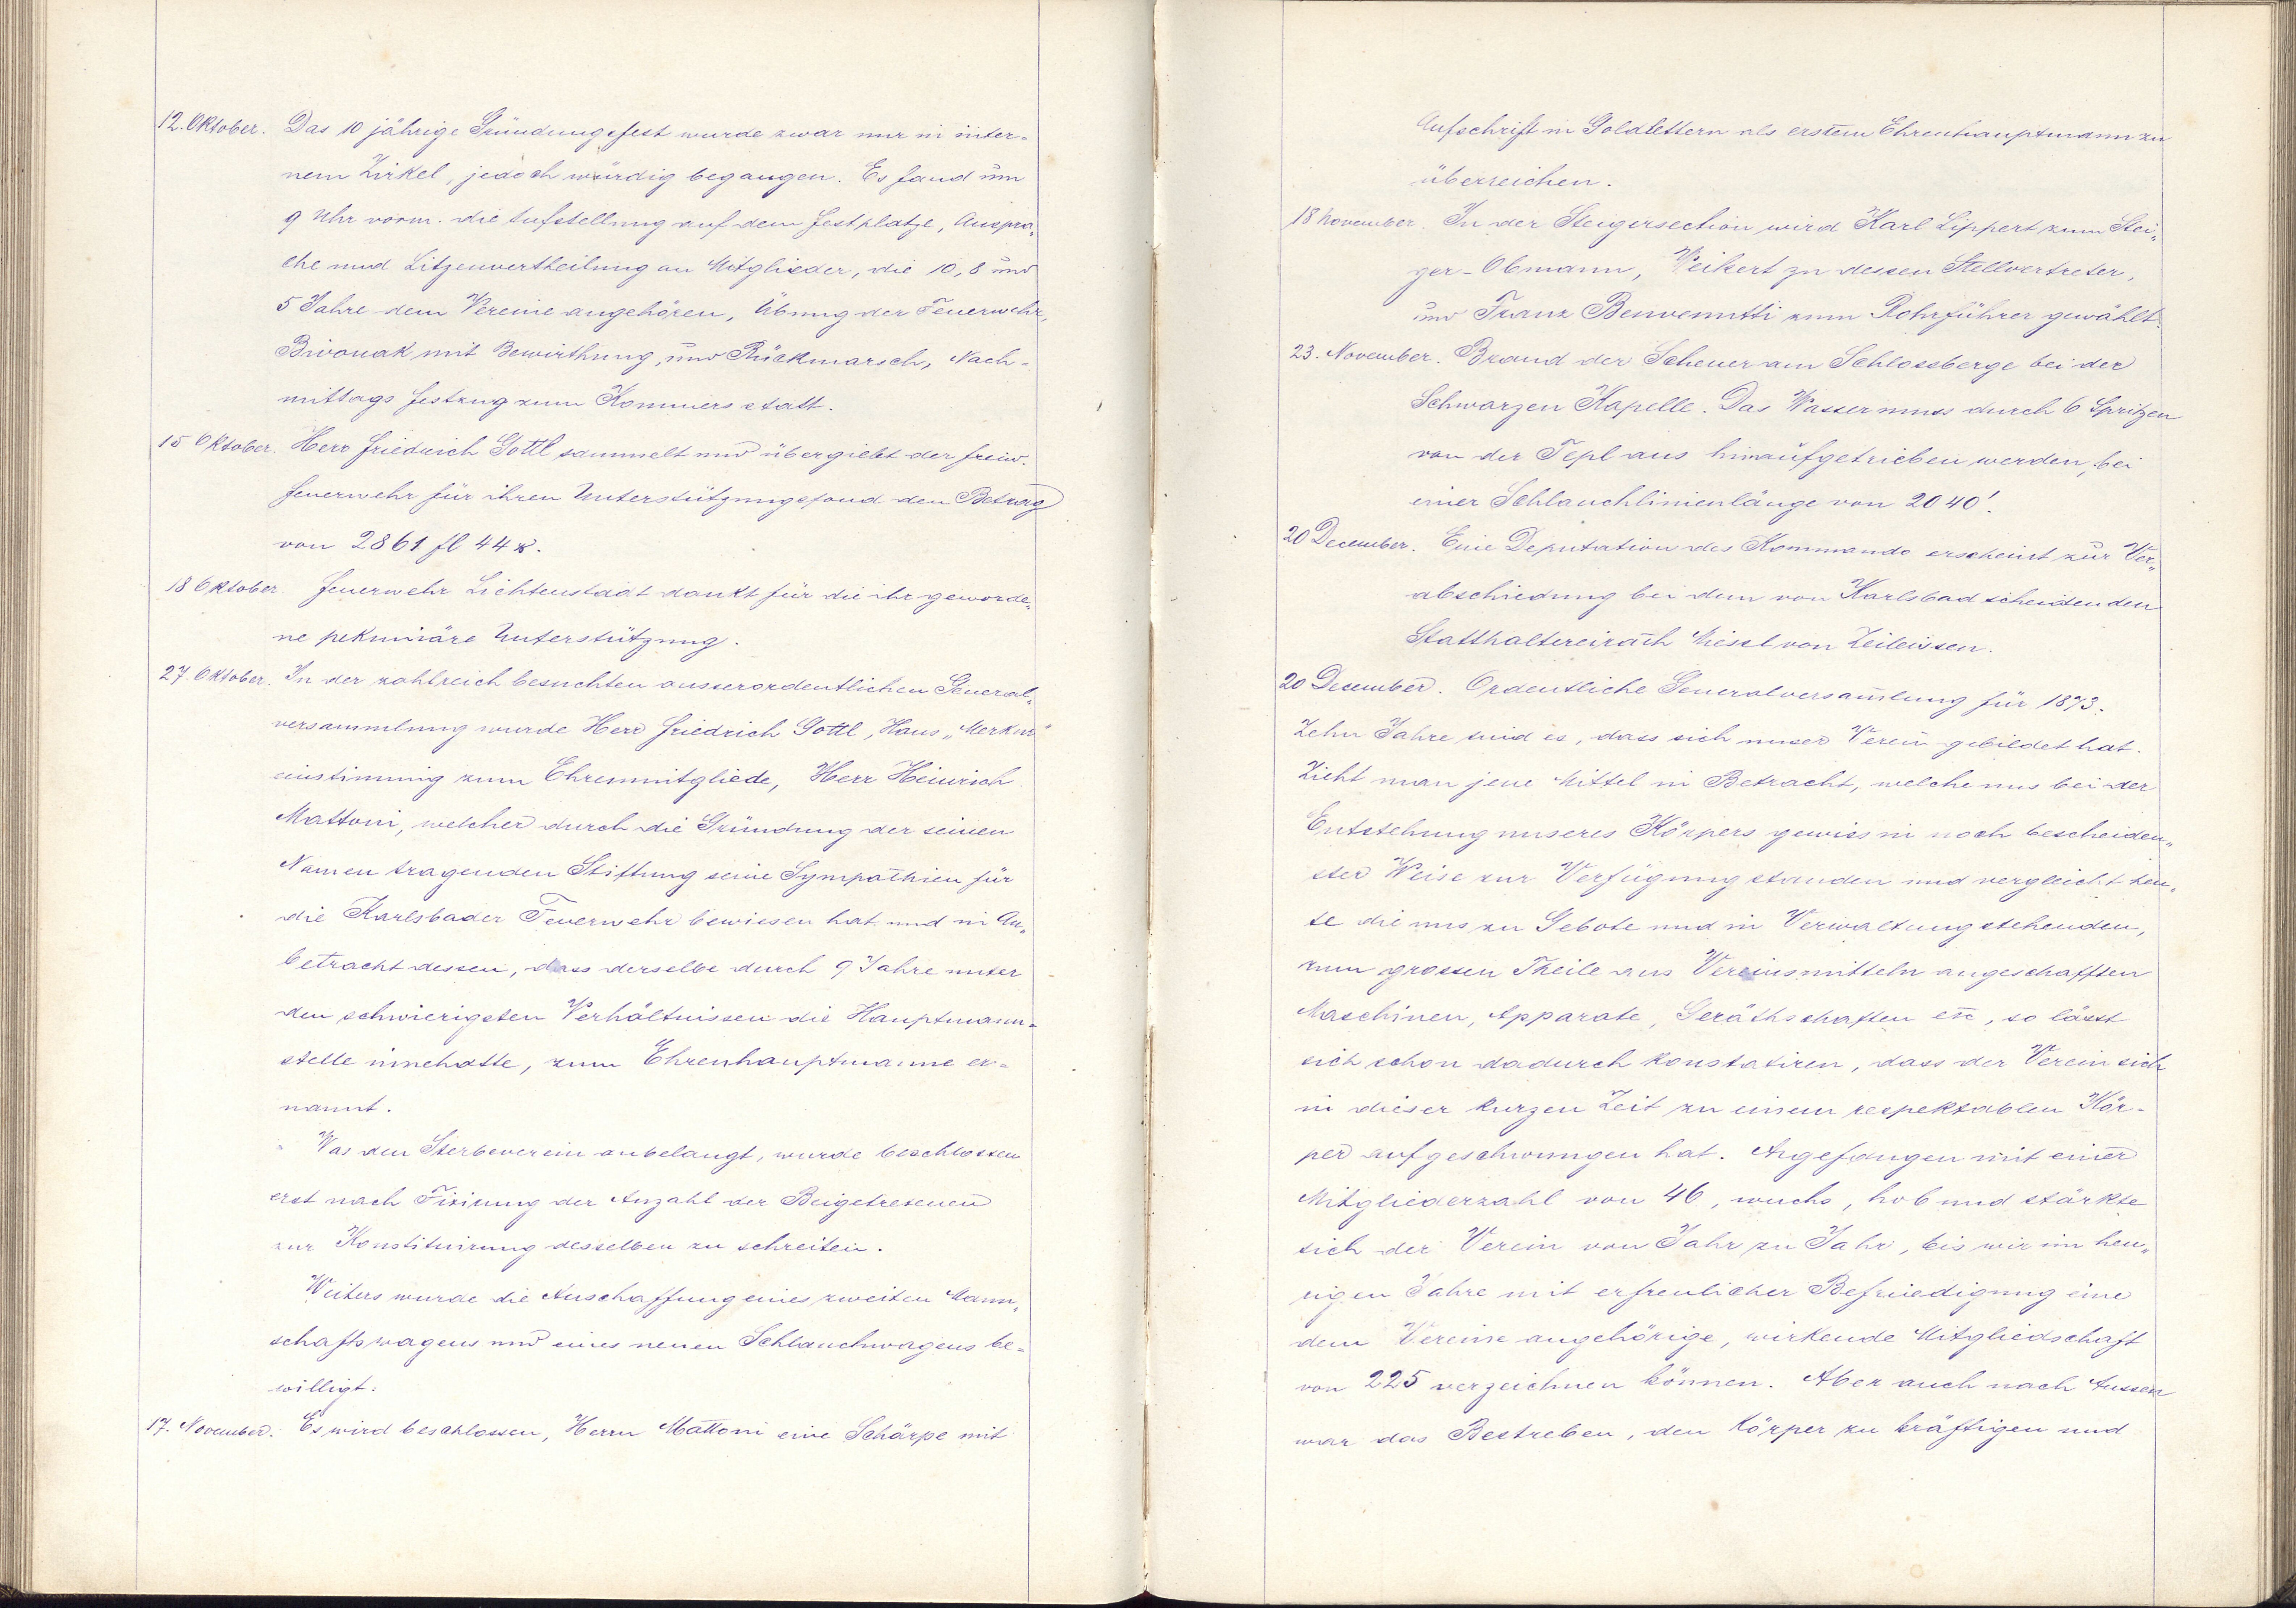 12. Oktober. Das 10 jährige Gründungsfest wurde zwar nur in inter-
nem Zirkel, jedoch würdig begangen. Es fand um
9 Uhr vorm. die Aufstellung auf dem Festplatze, Anspra„
che und Litzenvertheilung an Mitglieder, die 10, 8 und
5 Jahre dem Vereine angehören, Übung der Feuerwehr,
Bivouak mit Bewirthung, und Rückmarsch, Nach-
mittags Festzug zum Kommers statt.
15 Oktober. Herr Friedrich Gottl sammelt und übergiebt der freiw.
Feuerwehr für ihren Unterstützungsfond den Betrag
von 2861 fl 44 x.
18 Oktober. Feuerwehr Lichtenstadt dankt für die ihr geworde„
ne pekuniäre Unterstützung.
27. Oktober. In der zahlreich besuchten ausserordentlichen General„
versammlung wurde Herr Friedrich Gottl, Haus „Merkur"
einstimmig zum Ehrenmitgliede, Herr Heinrich
Mattoni, welcher durch die Gründung der seinen
Namen tragenden Stiftung seine Sympathien für
die Karlsbader Feuerwehr bewiesen hat und in An„
betracht dessen, dass derselbe durch 9 Jahre unter
den schwierigsten Verhältnissen die Hauptmann-
stelle innehatte, zum Ehrenhauptmanne er-
nannt.
Was den Sterbeverein anbelangt, wurde beschlossen
erst nach Fixirung der Anzahl der Beigetretenen
zur Konstituirung desselben zu schreiten.
Weiters wurde die Anschaffung eines zweiten Mann„
schaftswagens und eines neuen Schlauchwagens be-
willigt.
17. November. Es wird beschlossen, Herrn Mattoni eine Schärpe mit
Aufschrift in Goldlettern als erstem Ehrenhauptmann zu
überreichen.
18 November. In der Steigersection wird Karl Lippert zum Stei„
ger-Obmann, Weikert zu dessen Stellvertreter,
und Franz Benvenutti zum Rohrführer gewählt.
23. November. Brand der Scheuer am Schlossberge bei der
Schwarzen Kapelle. Das Wasser muss durch 6 Spritzen
von der Tepl aus hinaufgetrieben werden, bei
einer Schlauchlinienlänge von 2040'.
20 December. Eine Deputation des Kommando erscheint zur Ver„
abschiedung bei dem von Karlsbad scheidenden
Statthaltereirath Miesl von Zeileissen.
20 December. Ordentliche Generalversam̅lung für 1873.
Zehn Jahre sind es, dass sich unser Verein gebildet hat.
Zieht man jene Mittel in Betracht, welche uns bei der
Entstehung unseres Körpers gewiss in noch bescheiden„
ster Weise zur Verfügung standen und vergleicht heu„
te die uns zu Gebote und in Verwaltung stehenden,
zum grossen Theile aus Vereinsmitteln angeschafften
Maschinen, Apparate, Geräthschaften etc, so lässt
sich schon dadurch konstatiren, dass der Verein sich
in dieser kurzen Zeit zu einem respektablen Kör-
per aufgeschwungen hat. Angefangen mit einer
Mitgliederzahl von 46, wuchs, hob und stärkte
sich der Verein von Jahr zu Jahr, bis wir im heu„
rigen Jahre mit erfreulicher Befriedigung eine
dem Vereine angehörige, wirkende Mitgliedschaft
von 225 verzeichnen können. Aber auch nach Aussen
war das Bestreben, den Körper zu kräftigen und